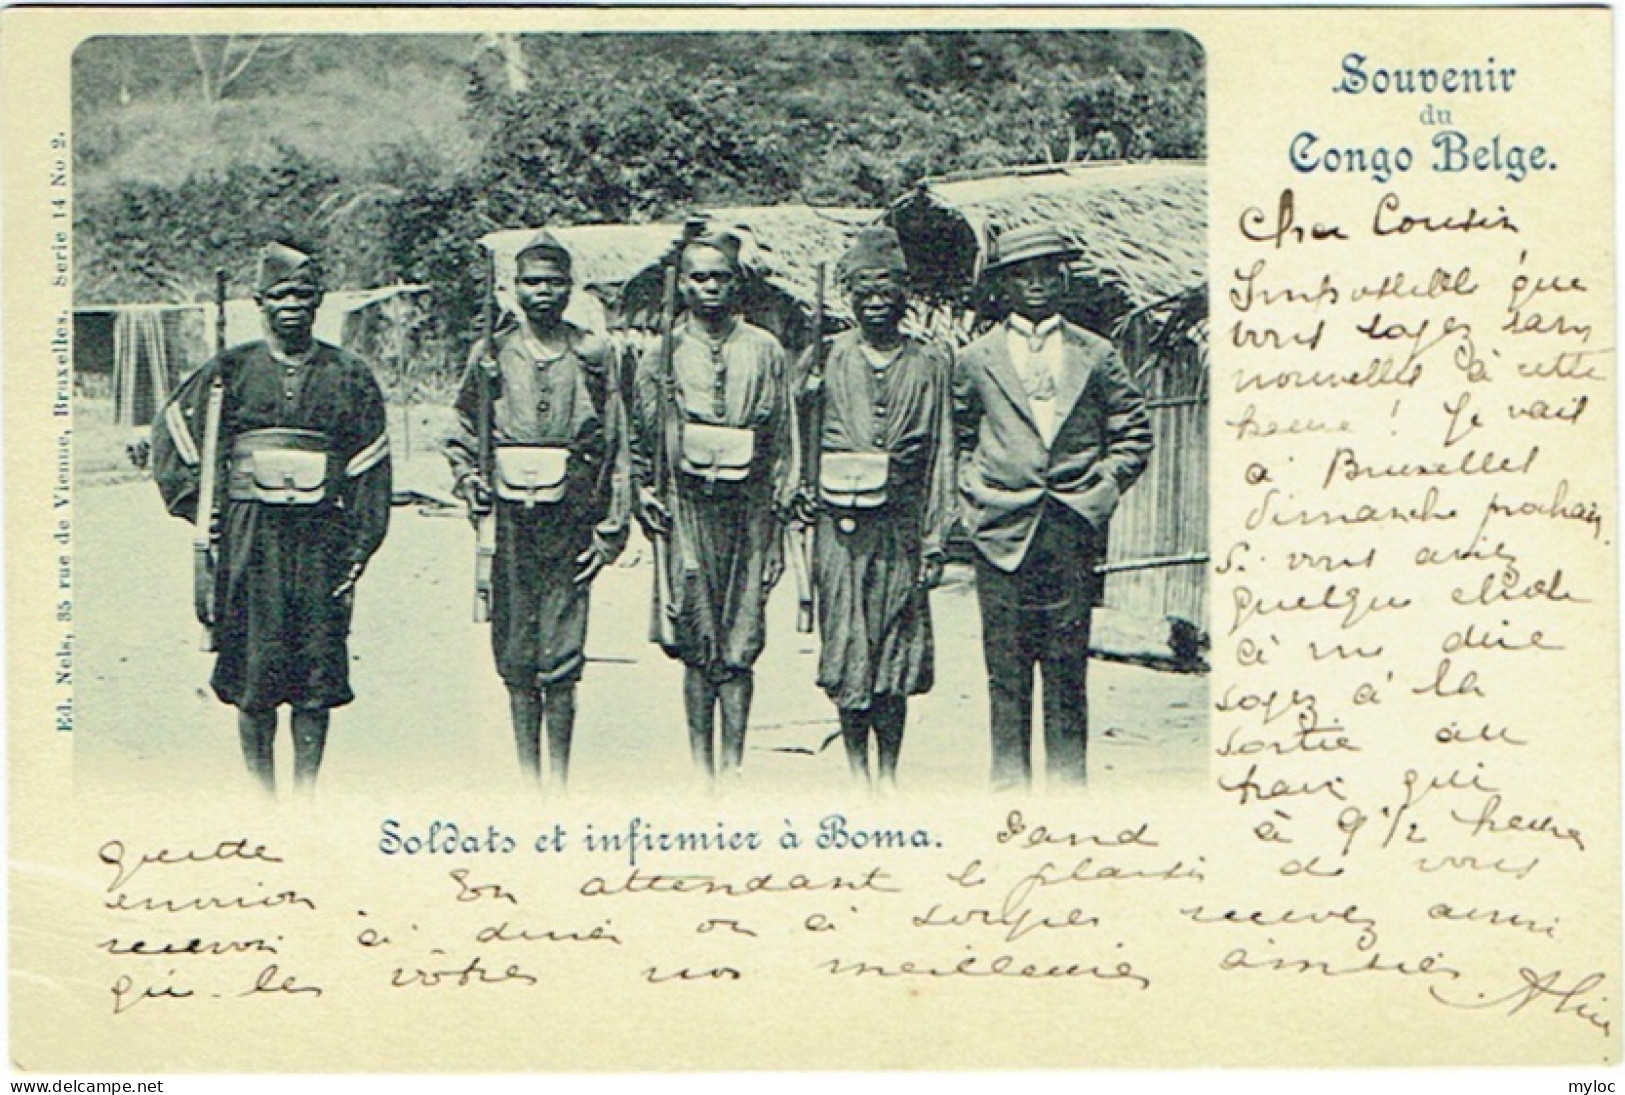 Souvenir
du
Congo Belge.
Ed. Nels, 35 rue de Vienne, Bruxelles. Serie 14 No 2.
Cher Cousin
Impossible que
vous soyez sans
nouvelles à cette
heure! Je vais
à Bruxelles
dimanche prochain
Si vous aviez
quelque chose
à me dire
soyez à la
sortie du
train qui
Soldats et infirmier à Boma.
quitte Gand à 9 1/2 heure
environ. En attendant le plaisir de vous
recevoir à diner ou à souper recevez ainsi
que les vôtres nos meilleures amitiés
Aline
delcampe.net
myloc